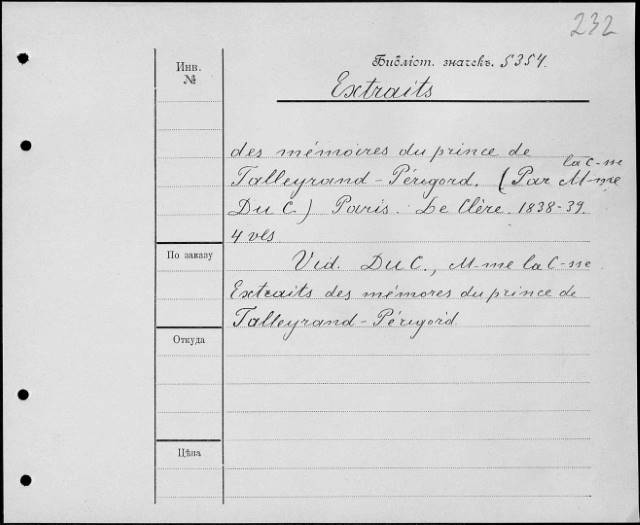 232
Инв.
№
Библіот. значекъ. 5354.
Extraits
des mémoires du prince de
Talleyrand-Périgord. (Par la C-ne M-me
Du C.) Paris. Le Clère. 1838-39.
4 vls
По заказу
Vid. Du C., M-me la C-ne
Extraits des mémores du prince de
Talleyrand-Périgord
Откуда
Цѣна